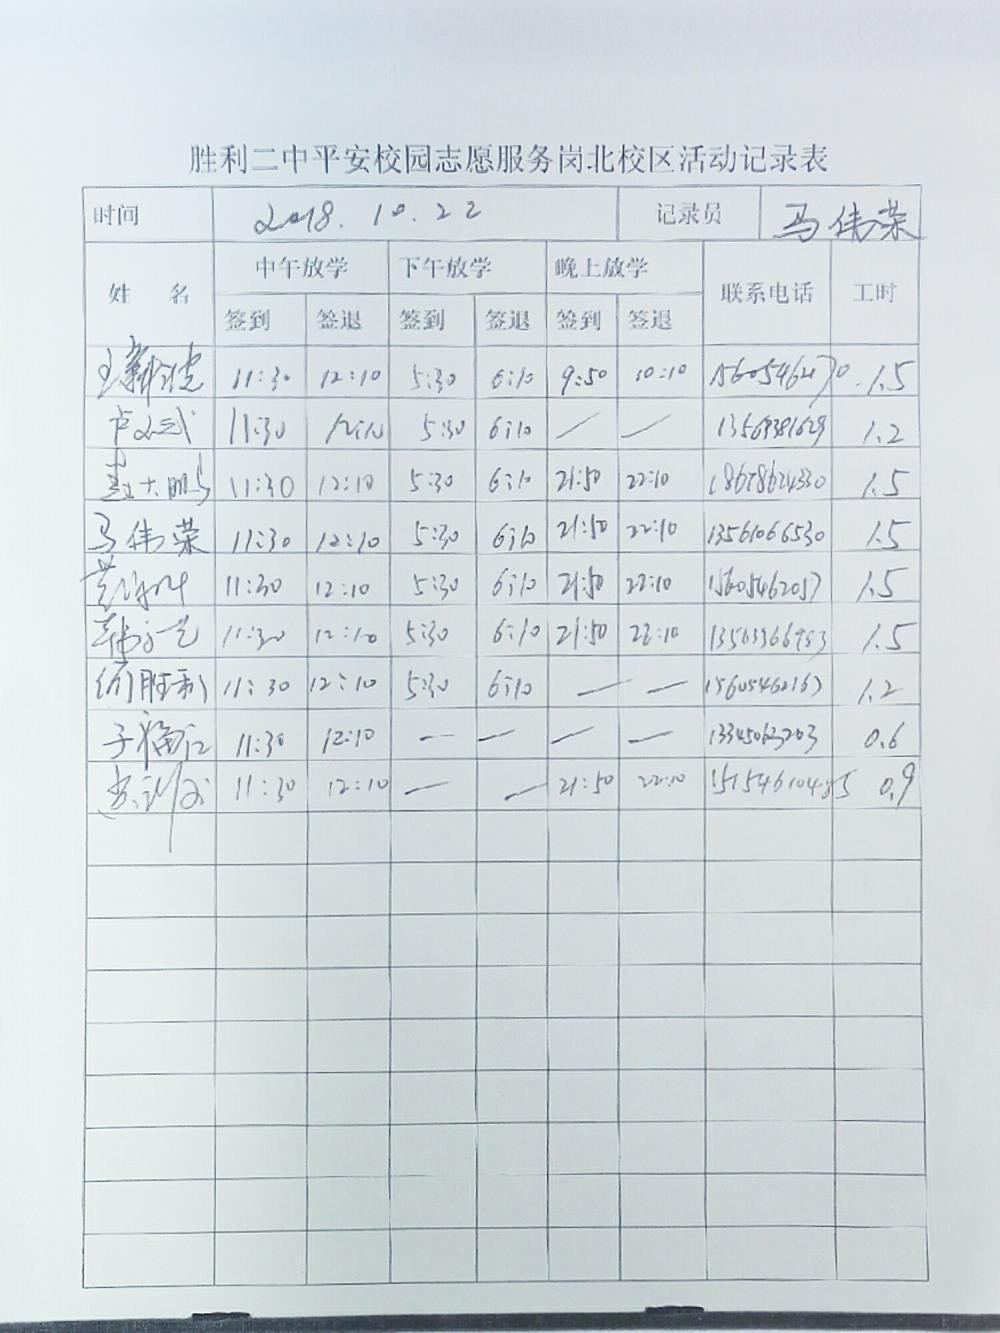 胜利二中平安校园志愿服务岗北校区活动记录表
时间 2018.10.22 记录员 马伟荣
姓 名 中午放学 下午放学 晚上放学 联系电话 工时
签到 签退 签到 签退 签到 签退
11:30 12:10 5:30 6:10 9:50 10:10 1.5
11:30 12:10 5:30 6:10 — — 1.2
大鹏 11:30 12:10 5:30 6:10 21:50 22:10 18678624330 1.5
马伟荣 11:30 12:10 5:30 6:10 21:50 22:10 13561066530 1.5
11:30 12:10 5:30 6:10 21:50 22:10 15605462057 1.5
11:30 12:10 5:30 6:10 21:50 22:10 1.5
胜利 11:30 12:10 5:30 6:10 — — 15605462167 1.2
11:30 12:10 — — — — 0.6
11:30 12:10 — — 21:50 22:10 0.9